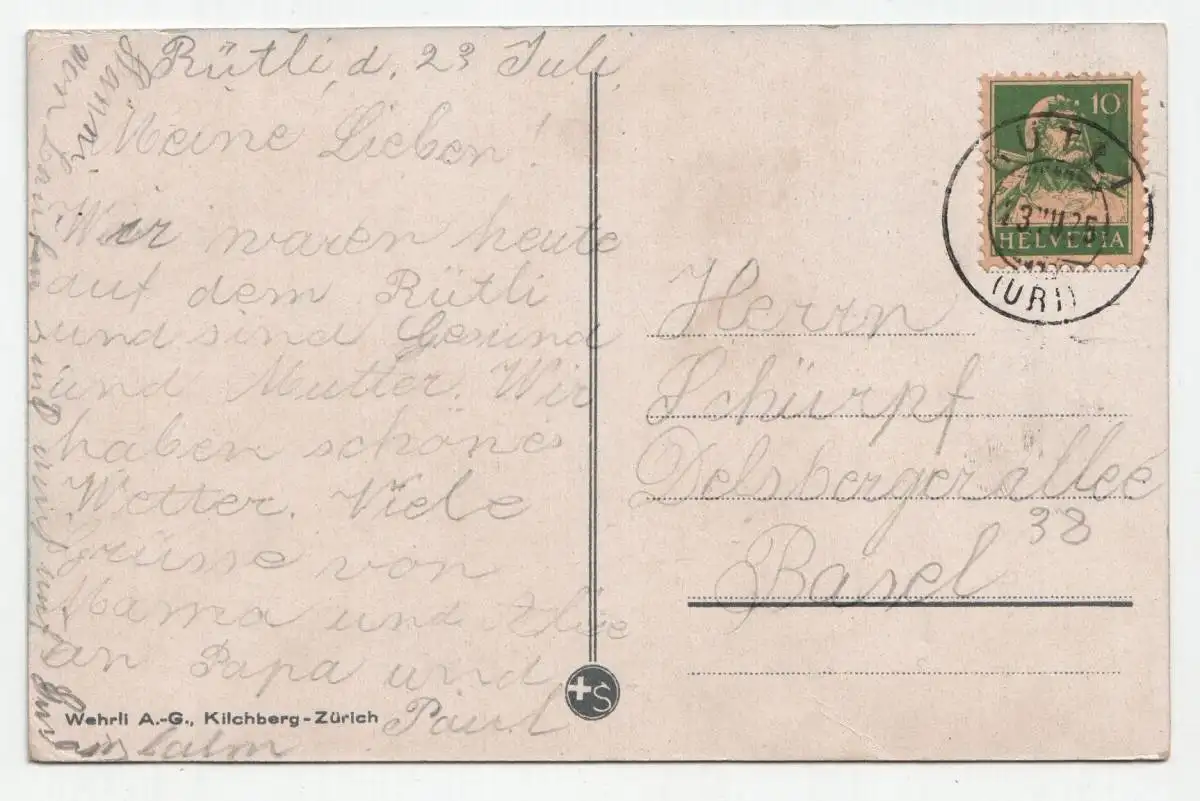 Rütli, d. 23 Juli
Meine Lieben!
Wir waren heute
auf dem Rütli
und sind Gesund
und Mutter. Wir
haben schönes
Wetter. Viele
Grüsse von
Mama und
an Papa und
Paul
Wehrli A.-G., Kilchberg-Zürich
+S
10
HELVETIA
RÜTLI
(URI)
Herrn
Schürpf
Delsbergerallee
38
Basel